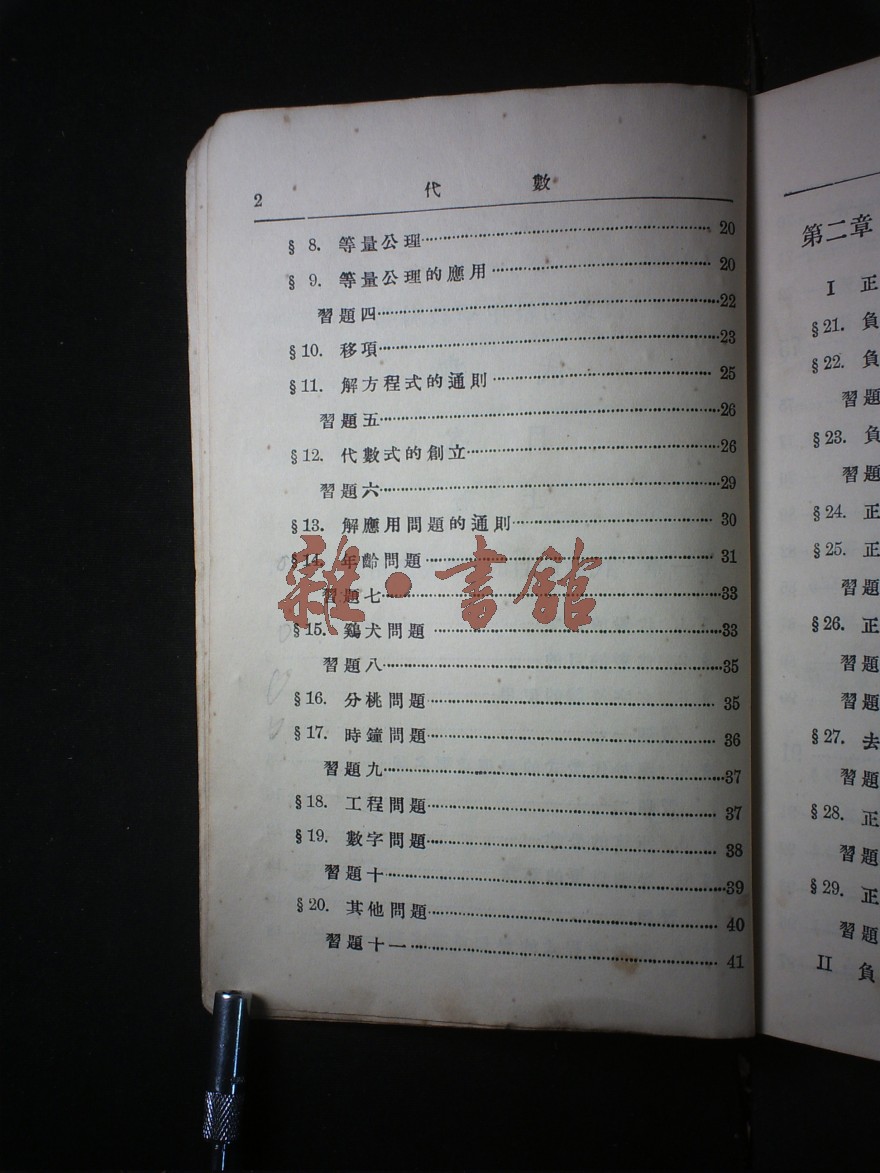 2 代數
§ 8. 等量公理 20
§ 9. 等量公理的應用 20
習題四 22
§10. 移項 23
§11. 解方程式的通則 25
習題五 26
§12. 代數式的創立 26
習題六 29
§13. 解應用問題的通則 30
§14. 年齡問題 31
習題七 33
§15. 鷄犬問題 33
習題八 35
§16. 分桃問題 35
§17. 時鐘問題 36
習題九 37
§18. 工程問題 37
§19. 數字問題 38
習題十 39
§20. 其他問題 40
習題十一 41
雜·書舘
第二章
I 正
§21. 負
§22. 負
習題
§23. 負
習題
§24. 正
§25. 正
習題
§26. 正
習題
習題
§27. 去
習題
§28. 正
習題
§29. 正
習題
II 負